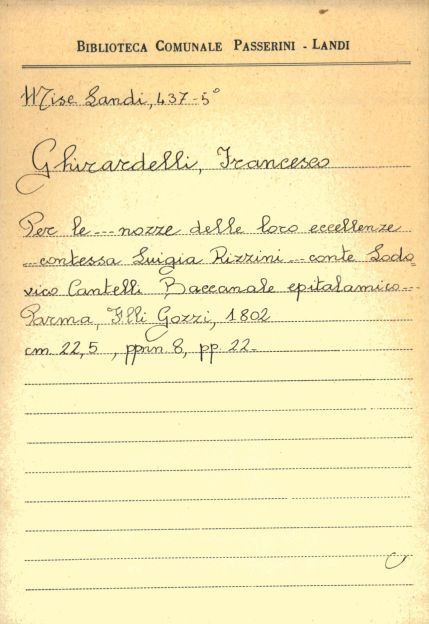 BIBLIOTECA COMUNALE PASSERINI - LANDI
Misc Landi, 437-5°
Ghirardelli, Francesco
Per le --- nozze delle loro eccellenze
... contessa Luigia Rizzini ... conte Lodo-
vico Cantelli Baccanale epitalamico ...
Parma, F.lli Gozzi, 1802
cm. 22,5 , ppnn 8, pp. 22-